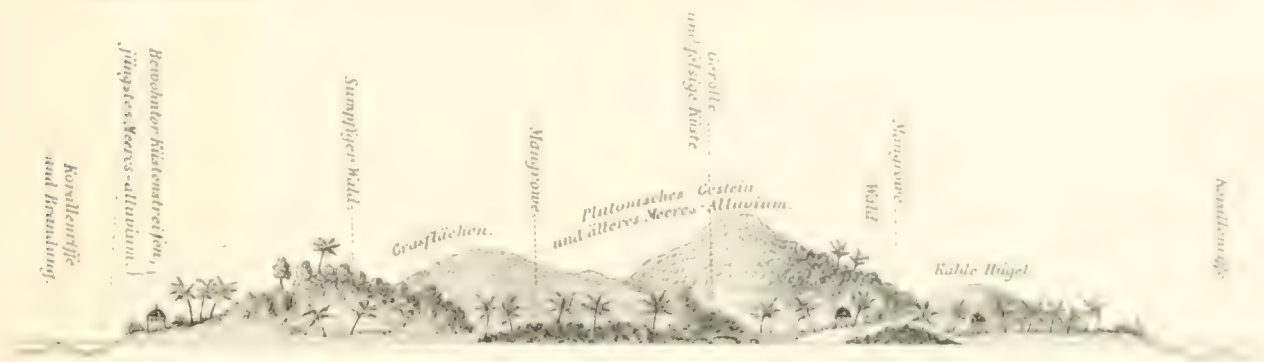 Korallenriffe
und Brandung.
Bewohnter Küstenstreifen,
jüngstes Meeres-alluvium.
Sumpfiger Wald.
Grasflächen.
Mangrowe.
Plutonisches Gestein
und älteres Meeres-Alluvium.
Gerölle
und felsige Küste
Wald
Mangrowe.
Kahle Hügel